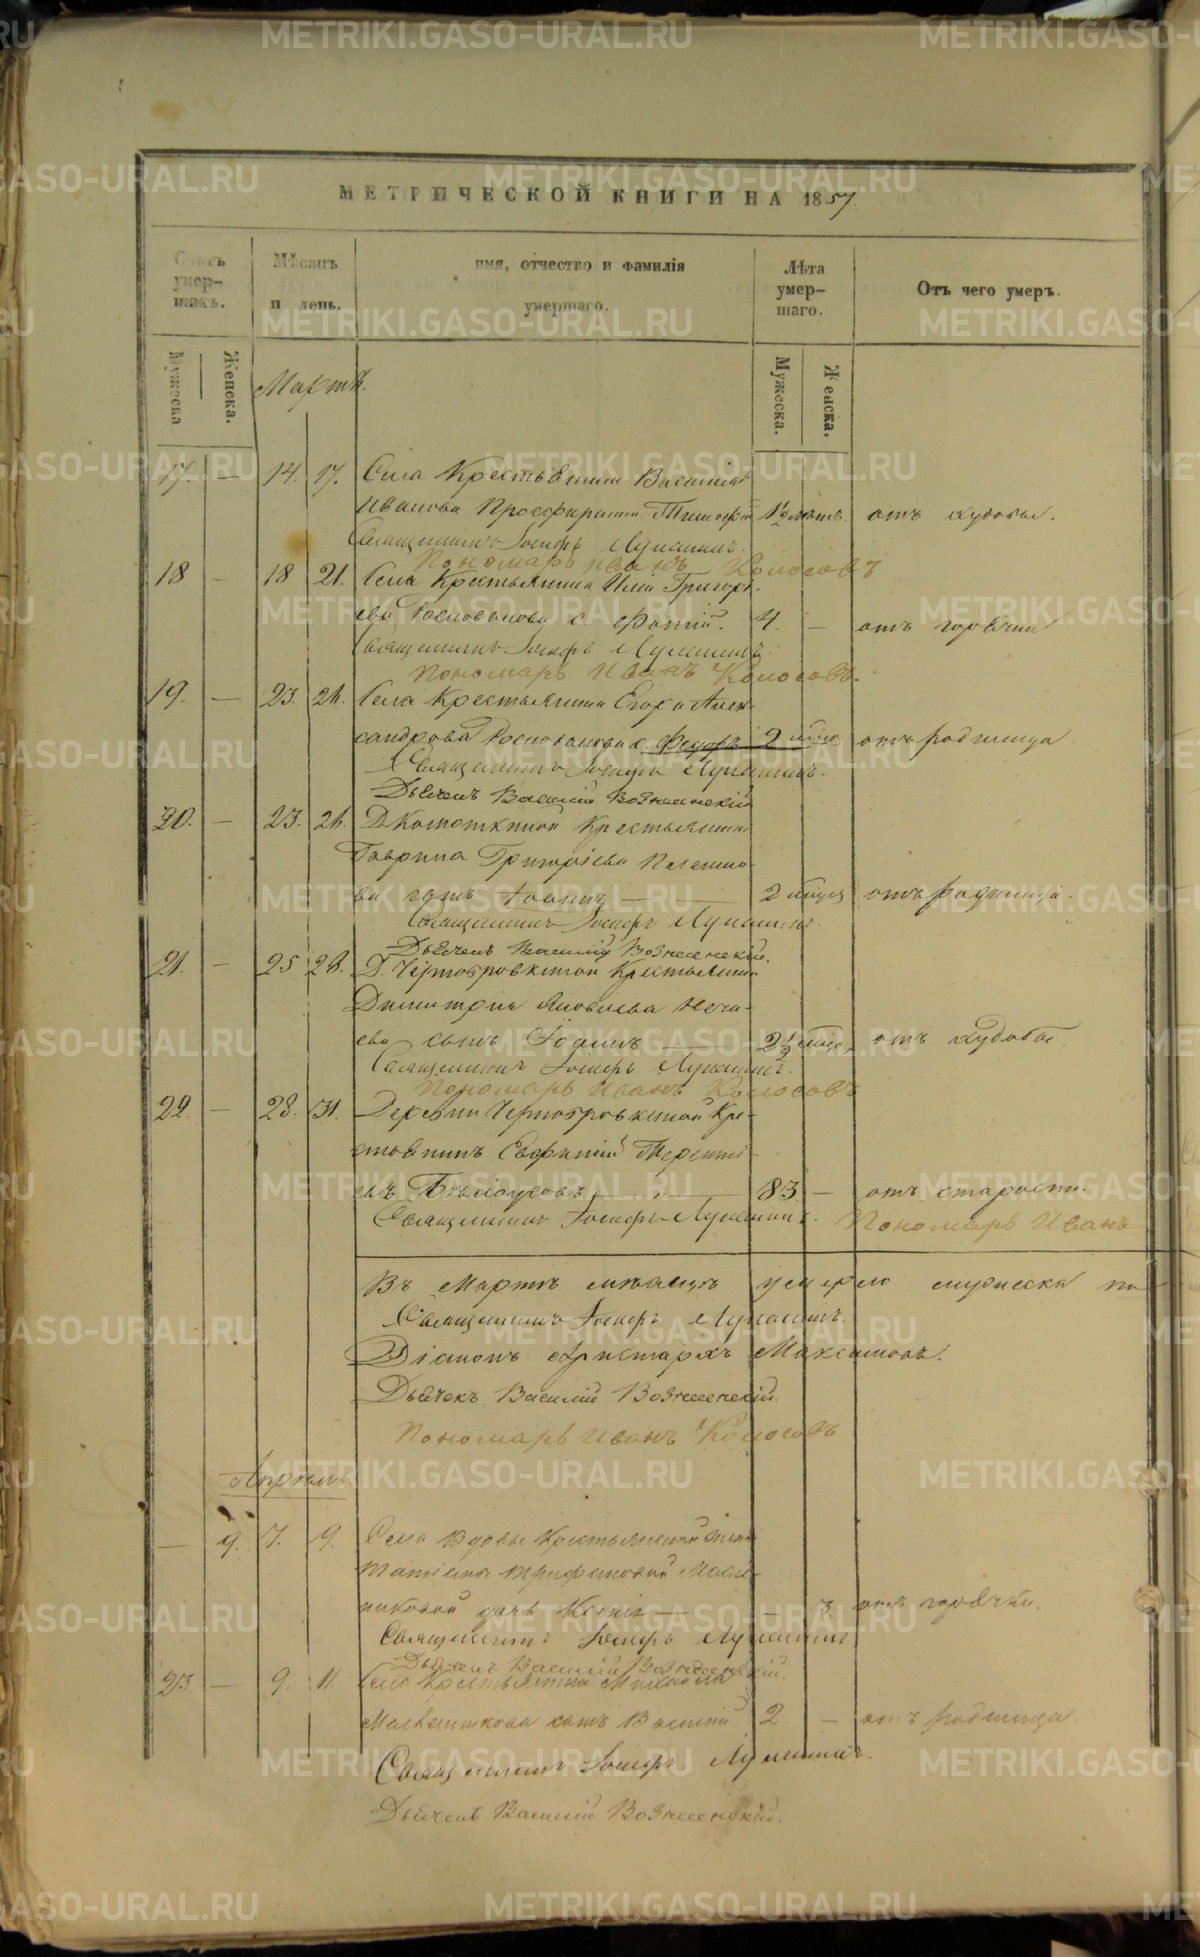 МЕТРИЧЕСКОЙ КНИГИ НА 1857
Счетъ умер-шихъ.
Мѣсяцъ и день.
имя, отчество и фамилія умершаго.
Лѣта умер-шаго.
Отъ чего умеръ.
Мужеска
Женска.
Мужеска.
Женска.
Мартъ.
17. — 14. 17. Села Крестьянина Василія
Иванова сынъ Тимофей 1½ отъ худобы.
Священникъ Іосифъ Лукашинъ
Пономарь Иванъ Колосовъ
18 — 18 21. Села Крестьянина Иліи Григорь-
ева с. Фотій. 4. — отъ горячки
Священникъ Іосифъ Лукашинъ
Пономарь Иванъ Колосовъ.
19. — 23. 26. Села Крестьянина Егора Алек-
сандрова с. Федоръ 2 отъ родимца
Священникъ Іосифъ Лукашинъ.
Дьячекъ Василій Вознесенскій
20. — 23. 26. Д. Крестьянина
Гаврила Григорьева
ва сынъ Іоаннъ — 2 мѣсяца отъ родимца.
Священникъ Іосифъ Лукашинъ.
Дьячекъ Василій Вознесенскій.
21. — 25 28. Д. Крестьянина
Димитрія Яковлева Неча-
ева сынъ — 2½ отъ худобы.
Священникъ Іосифъ Лукашинъ.
Пономарь Иванъ Колосовъ
22. — 28. 31. Деревни Кре-
стьянинъ Евфимій Теренті-
евъ Бѣлоусовъ — 83 — отъ старости.
Священникъ Іосифъ Лукашинъ. Пономарь Иванъ
Въ Мартѣ мѣсяцѣ умерло мужеска по-
Священникъ Іосифъ Лукашинъ.
Діаконъ Аристархъ Максимовъ.
Дьячекъ Василій Вознесенскій.
Пономарь Иванъ Колосовъ
Апрѣль.
— 9. 7. 9. Села Вдовы Крестьянской жены
Татіаны Трифоновой
дочь Ксенія — — 3. отъ горячки.
Священникъ Іосифъ Лукашинъ
Дьячекъ Василій Вознесенскій.
23 — 9. 11. Села Крестьянина Михаила
сынъ Василій 2 — отъ родимца.
Священникъ Іосифъ Лукашинъ.
Дьячекъ Василій Вознесенскій.
METRIKI.GASO-URAL.RU